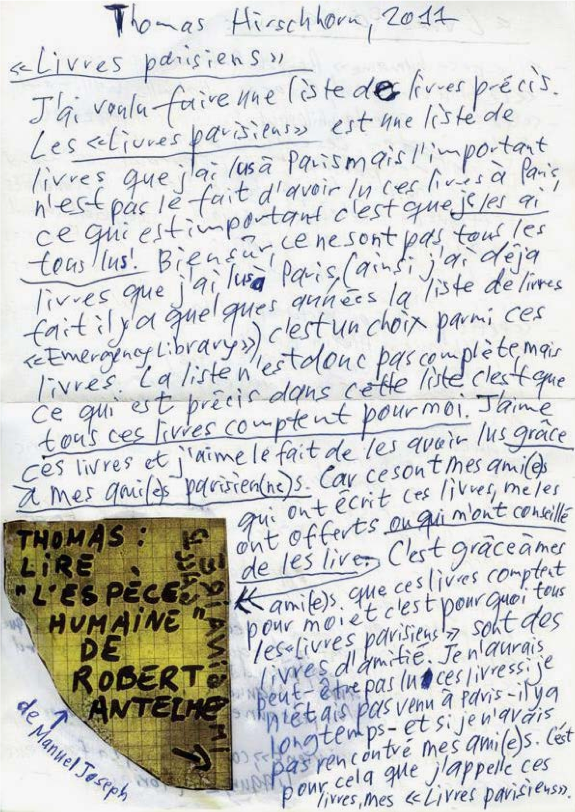 Thomas Hirschhorn, 2017
«Livres parisiens»
J'ai voulu faire une liste de livres précis.
Les «Livres parisiens» est une liste de
livres que j'ai lus à Paris mais l'important
n'est pas le fait d'avoir lu ces livres à Paris
ce qui est important c'est que je les ai
tous lus! Bien sûr, ce ne sont pas tous les
livres que j'ai lus à Paris, (ainsi j'ai déjà
fait il y a quelques années la liste de livres
«Emergency Library») c'est un choix parmi ces
livres. La liste n'est donc pas complète, mais
ce qui est précis dans cette liste c'est que
tous ces livres comptent pour moi. J'aime
ces livres et j'aime le fait de les avoir lus grâce
à mes ami(e)s parisien(ne)s. Car ce sont mes ami(e)s
qui ont écrit ces livres, me les
ont offerts ou qui m'ont conseillé
de les lire. C'est grâce à mes
ami(e)s que ces livres comptent
pour moi et c'est pourquoi tous
les «livres parisiens» sont des
livres d'amitié. Je n'aurais
peut-être pas lu ces livres si je
n'étais pas venu à Paris - il y a
longtemps - et si je n'avais
pas rencontré mes ami(e)s. C'est
pour cela que j'appelle ces
livres, mes «Livres parisiens».
THOMAS :
LIRE
"L'ESPÈCE
HUMAINE"
DE
ROBERT
ANTELME
de Manuel Joseph